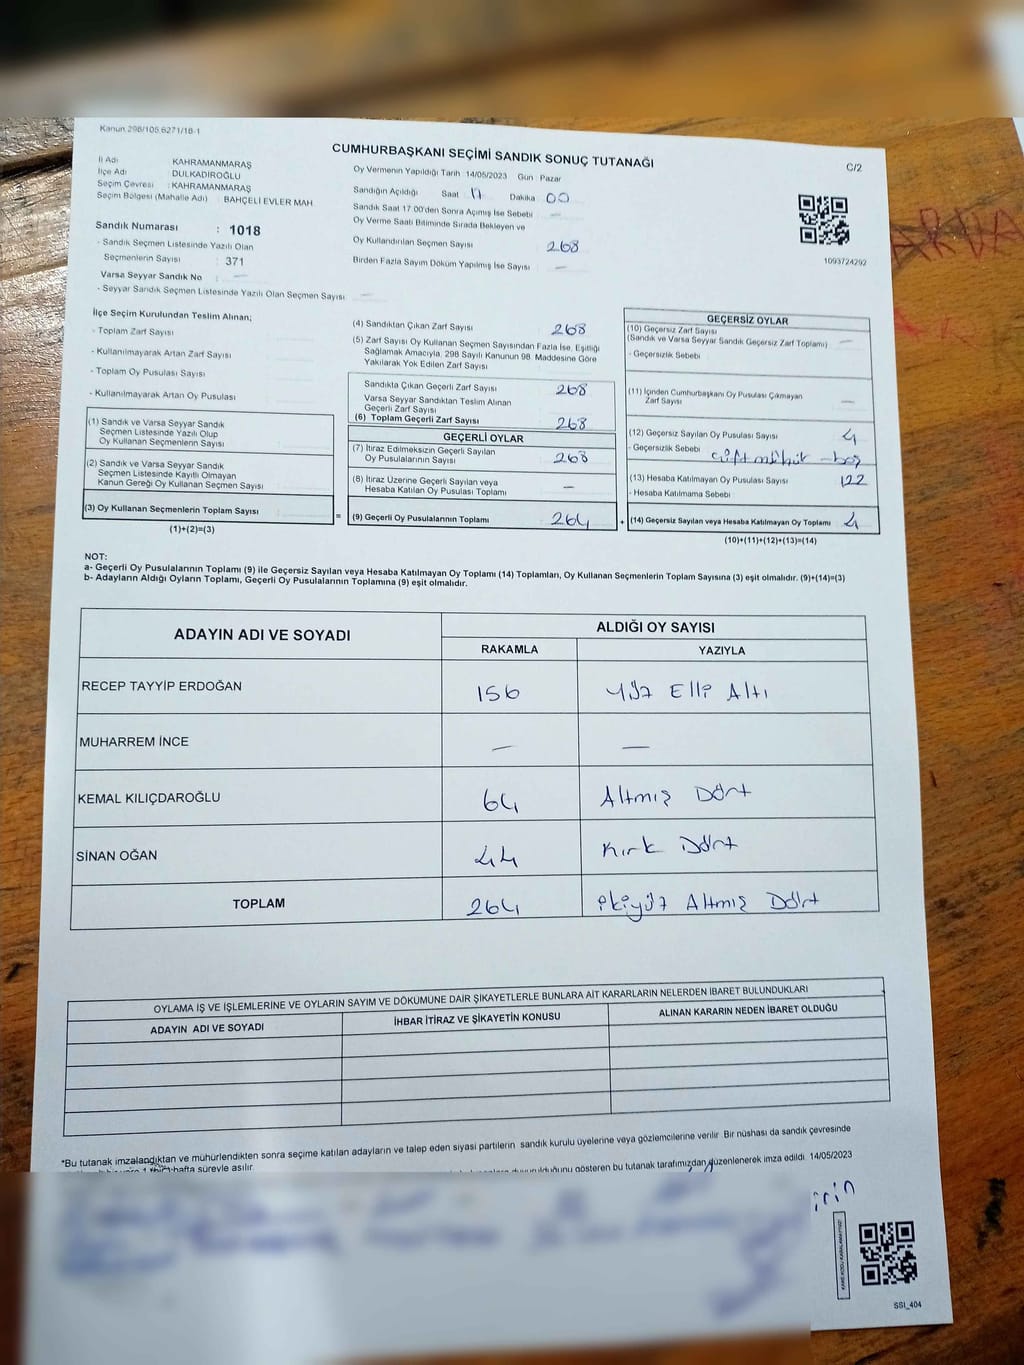 Kanun 298/105,6271/18-1
CUMHURBAŞKANI SEÇİMİ SANDIK SONUÇ TUTANAĞI
C/2
İl Adı : KAHRAMANMARAŞ
İlçe Adı : DULKADİROĞLU
Seçim Çevresi : KAHRAMANMARAŞ
Seçim Bölgesi (Mahalle Adı) : BAHÇELİ EVLER MAH
Oy Vermenin Yapıldığı Tarih 14/05/2023 Gün Pazar
Sandığın Açıldığı Saat 17 Dakika 00
Sandık Saat 17.00'den Sonra Açılmış İse Sebebi —
Oy Verme Saati Bitiminde Sırada Bekleyen ve
Oy Kullandırılan Seçmen Sayısı 268
Birden Fazla Sayım Döküm Yapılmış İse Sayısı —
1093724292
Sandık Numarası : 1018
- Sandık Seçmen Listesinde Yazılı Olan
Seçmenlerin Sayısı : 371
Varsa Seyyar Sandık No : —
- Seyyar Sandık Seçmen Listesinde Yazılı Olan Seçmen Sayısı : —
İlçe Seçim Kurulundan Teslim Alınan;
- Toplam Zarf Sayısı
- Kullanılmayarak Artan Zarf Sayısı
- Toplam Oy Pusulası Sayısı
- Kullanılmayarak Artan Oy Pusulası
(1) Sandık ve Varsa Seyyar Sandık
Seçmen Listesinde Yazılı Olup
Oy Kullanan Seçmenlerin Sayısı
(2) Sandık ve Varsa Seyyar Sandık
Seçmen Listesinde Kayıtlı Olmayan
Kanun Gereği Oy Kullanan Seçmen Sayısı
(3) Oy Kullanan Seçmenlerin Toplam Sayısı
(1)+(2)=(3)
=
(4) Sandıktan Çıkan Zarf Sayısı 268
(5) Zarf Sayısı Oy Kullanan Seçmen Sayısından Fazla İse, Eşitliği
Sağlamak Amacıyla, 298 Sayılı Kanunun 98. Maddesine Göre
Yakılarak Yok Edilen Zarf Sayısı
Sandıkta Çıkan Geçerli Zarf Sayısı 268
Varsa Seyyar Sandıktan Teslim Alınan
Geçerli Zarf Sayısı
(6) Toplam Geçerli Zarf Sayısı 268
GEÇERLİ OYLAR
(7) İtiraz Edilmeksizin Geçerli Sayılan
Oy Pusulalarının Sayısı 268
(8) İtiraz Üzerine Geçerli Sayılan veya
Hesaba Katılan Oy Pusulası Toplamı —
(9) Geçerli Oy Pusulalarının Toplamı 264
+
GEÇERSİZ OYLAR
(10) Geçersiz Zarf Sayısı
(Sandık ve Varsa Seyyar Sandık Geçersiz Zarf Toplamı) —
- Geçersizlik Sebebi
(11) İçinden Cumhurbaşkanı Oy Pusulası Çıkmayan
Zarf Sayısı —
(12) Geçersiz Sayılan Oy Pusulası Sayısı 4
- Geçersizlik Sebebi çift mühür - boş
(13) Hesaba Katılmayan Oy Pusulası Sayısı 122
- Hesaba Katılmama Sebebi
(14) Geçersiz Sayılan veya Hesaba Katılmayan Oy Toplamı 4
(10)+(11)+(12)+(13)=(14)
NOT:
a- Geçerli Oy Pusulalarının Toplamı (9) ile Geçersiz Sayılan veya Hesaba Katılmayan Oy Toplamı (14) Toplamları, Oy Kullanan Seçmenlerin Toplam Sayısına (3) eşit olmalıdır. (9)+(14)=(3)
b- Adayların Aldığı Oyların Toplamı, Geçerli Oy Pusulalarının Toplamına (9) eşit olmalıdır.
ADAYIN ADI VE SOYADI
ALDIĞI OY SAYISI
RAKAMLA YAZIYLA
RECEP TAYYİP ERDOĞAN 156 Yüz Elli Altı
MUHARREM İNCE — —
KEMAL KILIÇDAROĞLU 64 Altmış Dört
SİNAN OĞAN 44 Kırk Dört
TOPLAM 264 ikiyüz Altmış Dört
OYLAMA İŞ VE İŞLEMLERİNE VE OYLARIN SAYIM VE DÖKÜMÜNE DAİR ŞİKAYETLERLE BUNLARA AİT KARARLARIN NELERDEN İBARET BULUNDUKLARI
ADAYIN ADI VE SOYADI İHBAR İTİRAZ VE ŞİKAYETİN KONUSU ALINAN KARARIN NEDEN İBARET OLDUĞU
*Bu tutanak imzalandıktan ve mühürlendikten sonra seçime katılan adayların ve talep eden siyasi partilerin sandık kurulu üyelerine veya gözlemcilerine verilir. Bir nüshası da sandık çevresinde
hafta süreyle asılır.
gösteren bu tutanak tarafımızdan düzenlenerek imza edildi. 14/05/2023
SSI_404